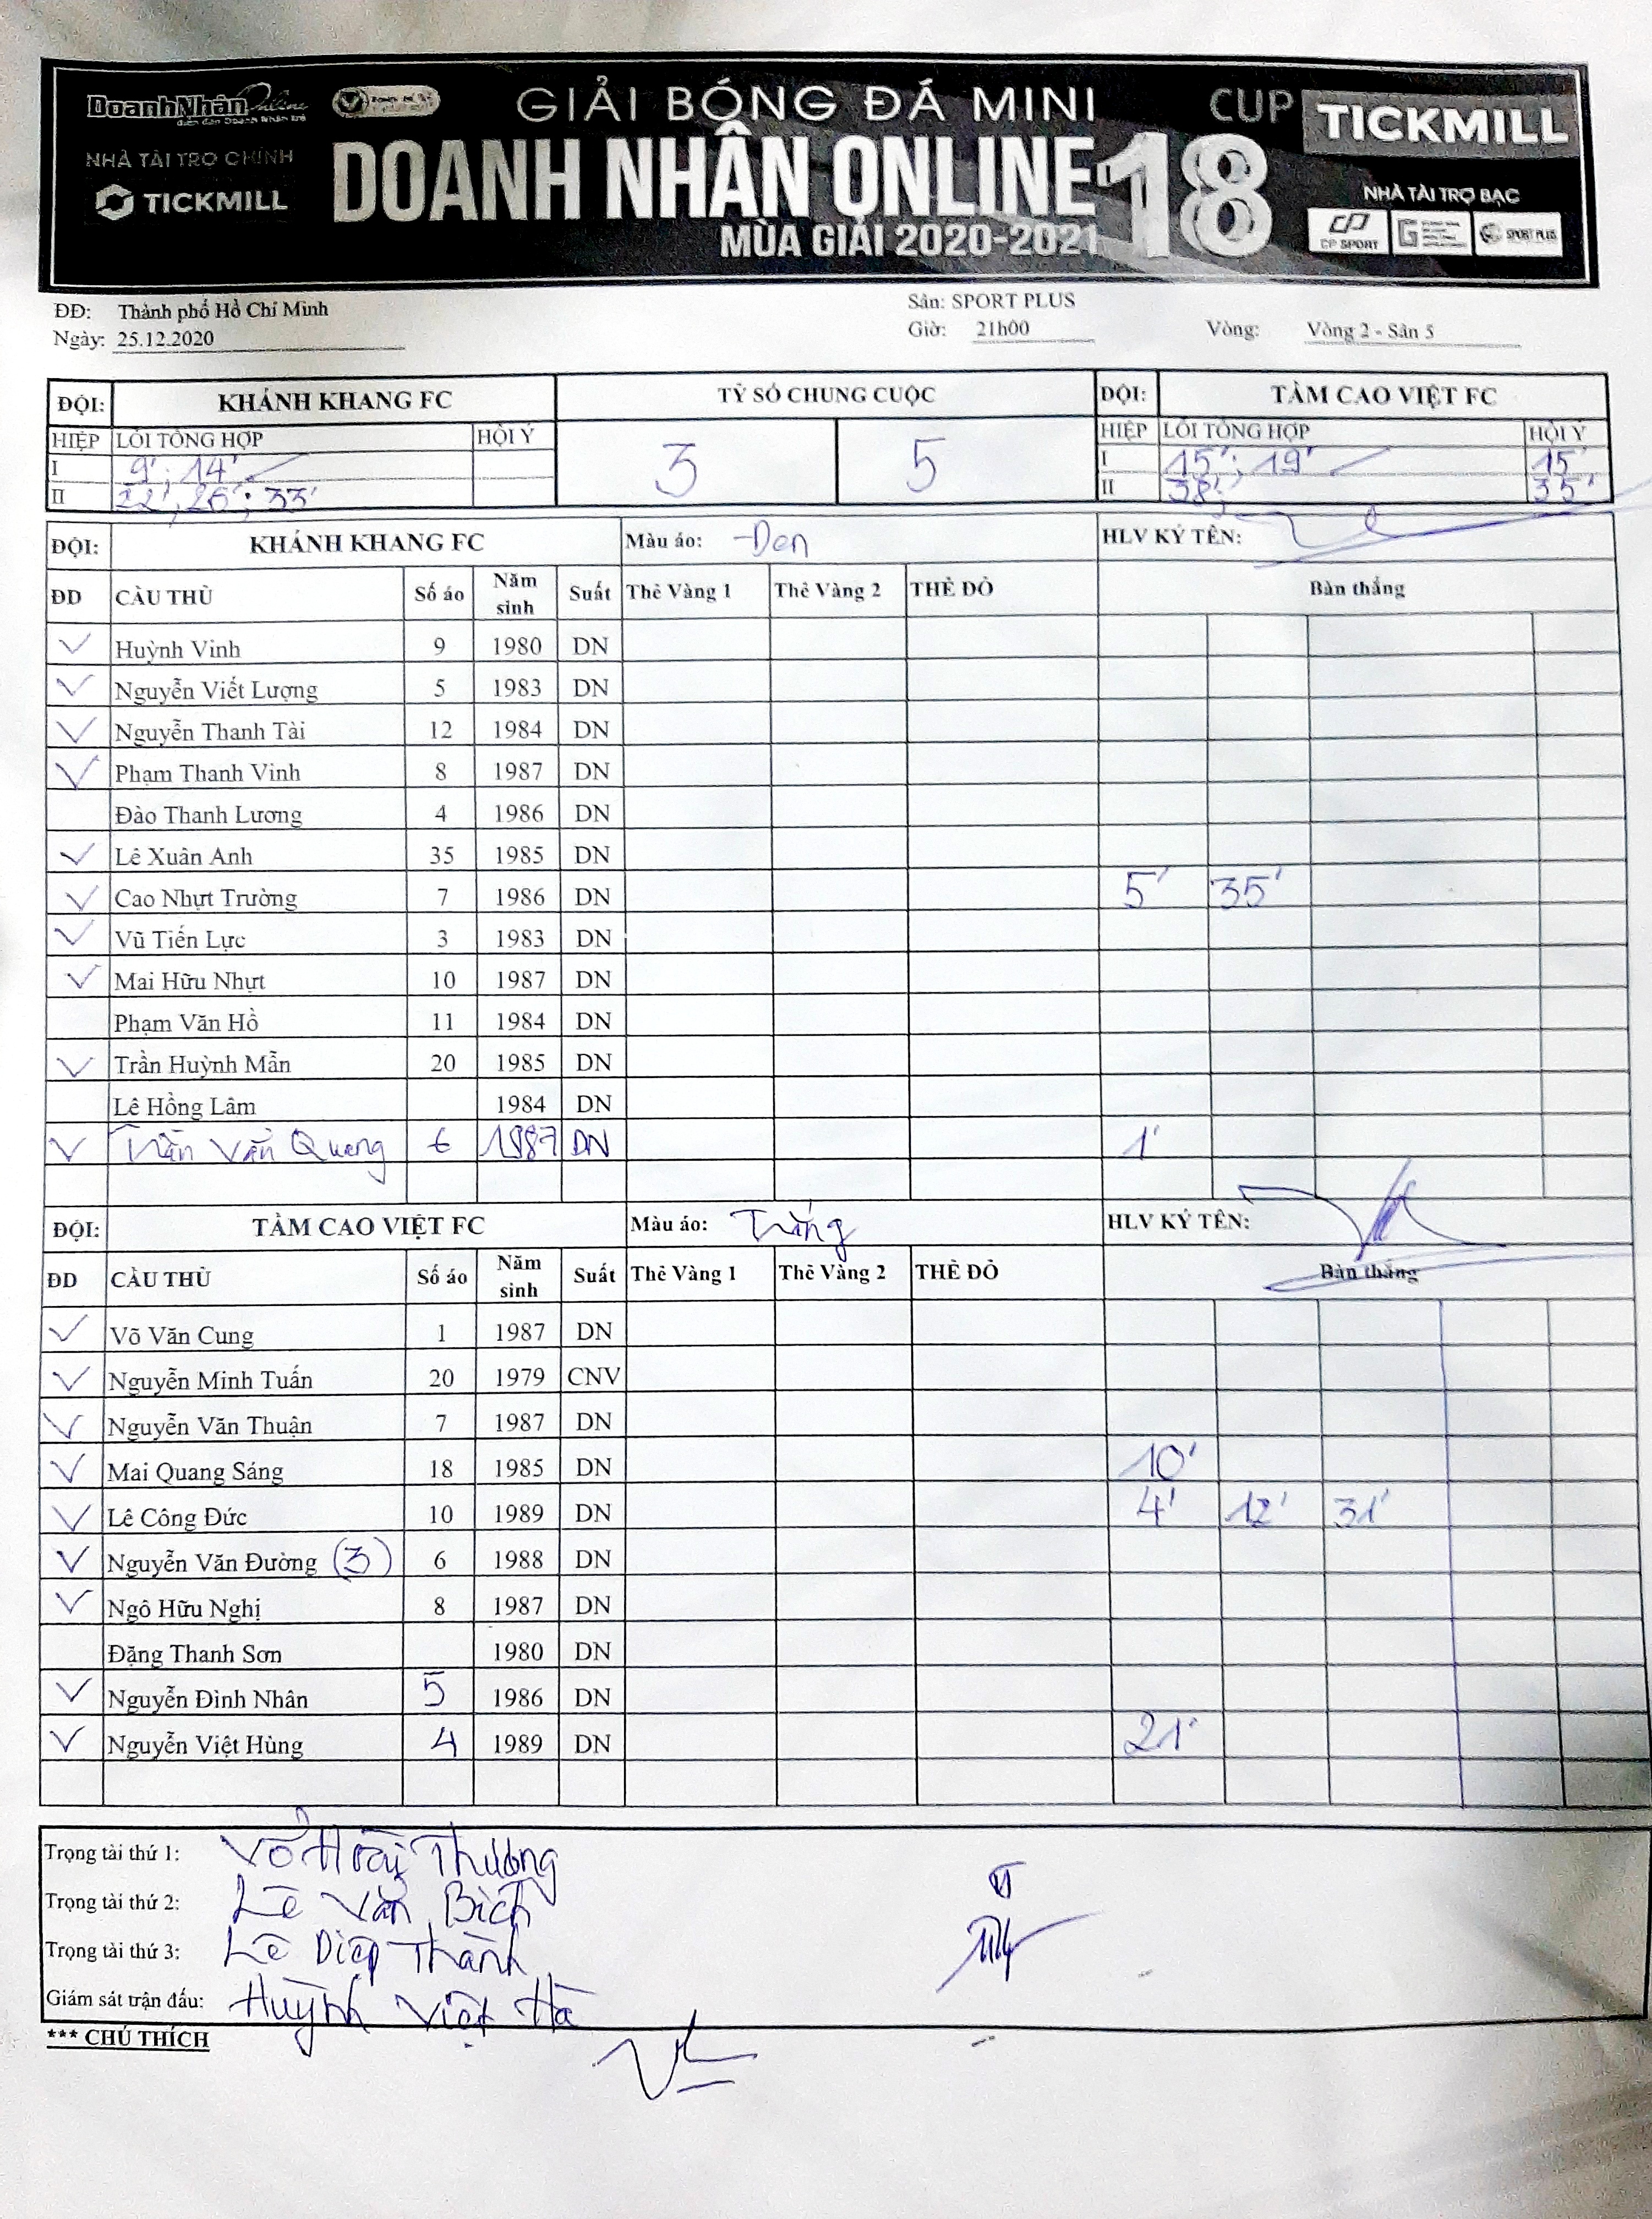 DoanhNhân Online
GIẢI BÓNG ĐÁ MINI
CUP TICKMILL
NHÀ TÀI TRỢ CHÍNH
TICKMILL
DOANH NHÂN ONLINE 18
MÙA GIẢI 2020-2021
NHÀ TÀI TRỢ BẠC
CP SPORT
SPORT PLUS
ĐĐ: Thành phố Hồ Chí Minh Sân: SPORT PLUS
Ngày: 25.12.2020 Giờ: 21h00 Vòng: Vòng 2 - Sân 5
ĐỘI: KHÁNH KHANG FC TỶ SỐ CHUNG CUỘC ĐỘI: TẦM CAO VIỆT FC
HIỆP LỖI TỔNG HỢP HỘI Ý 3 5 HIỆP LỖI TỔNG HỢP HỘI Ý
I 9'; 14' I 15'; 19' 15'
II 22'; 26'; 33' II 38' 35'
ĐỘI: KHÁNH KHANG FC Màu áo: Đen HLV KÝ TÊN:
ĐD CẦU THỦ Số áo Năm sinh Suất Thẻ Vàng 1 Thẻ Vàng 2 THẺ ĐỎ Bàn thắng
Huỳnh Vinh 9 1980 DN
Nguyễn Viết Lượng 5 1983 DN
Nguyễn Thanh Tài 12 1984 DN
Phạm Thanh Vinh 8 1987 DN
Đào Thanh Lương 4 1986 DN
Lê Xuân Anh 35 1985 DN
Cao Nhựt Trường 7 1986 DN 5' 35'
Vũ Tiến Lực 3 1983 DN
Mai Hữu Nhựt 10 1987 DN
Phạm Văn Hồ 11 1984 DN
Trần Huỳnh Mẫn 20 1985 DN
Lê Hồng Lâm 1984 DN
Trần Văn Quang 6 1987 DN 1'
ĐỘI: TẦM CAO VIỆT FC Màu áo: Trắng HLV KÝ TÊN:
ĐD CẦU THỦ Số áo Năm sinh Suất Thẻ Vàng 1 Thẻ Vàng 2 THẺ ĐỎ Bàn thắng
Võ Văn Cung 1 1987 DN
Nguyễn Minh Tuấn 20 1979 CNV
Nguyễn Văn Thuận 7 1987 DN
Mai Quang Sáng 18 1985 DN 10'
Lê Công Đức 10 1989 DN 4' 12' 31'
Nguyễn Văn Đường (3) 6 1988 DN
Ngô Hữu Nghị 8 1987 DN
Đặng Thanh Sơn 1980 DN
Nguyễn Đình Nhân 5 1986 DN
Nguyễn Việt Hùng 4 1989 DN 21'
Trọng tài thứ 1: Võ Hoài Thương
Trọng tài thứ 2: Lê Văn Bích
Trọng tài thứ 3: Lê Diệp Thành
Giám sát trận đấu: Huỳnh Việt Hà
*** CHÚ THÍCH